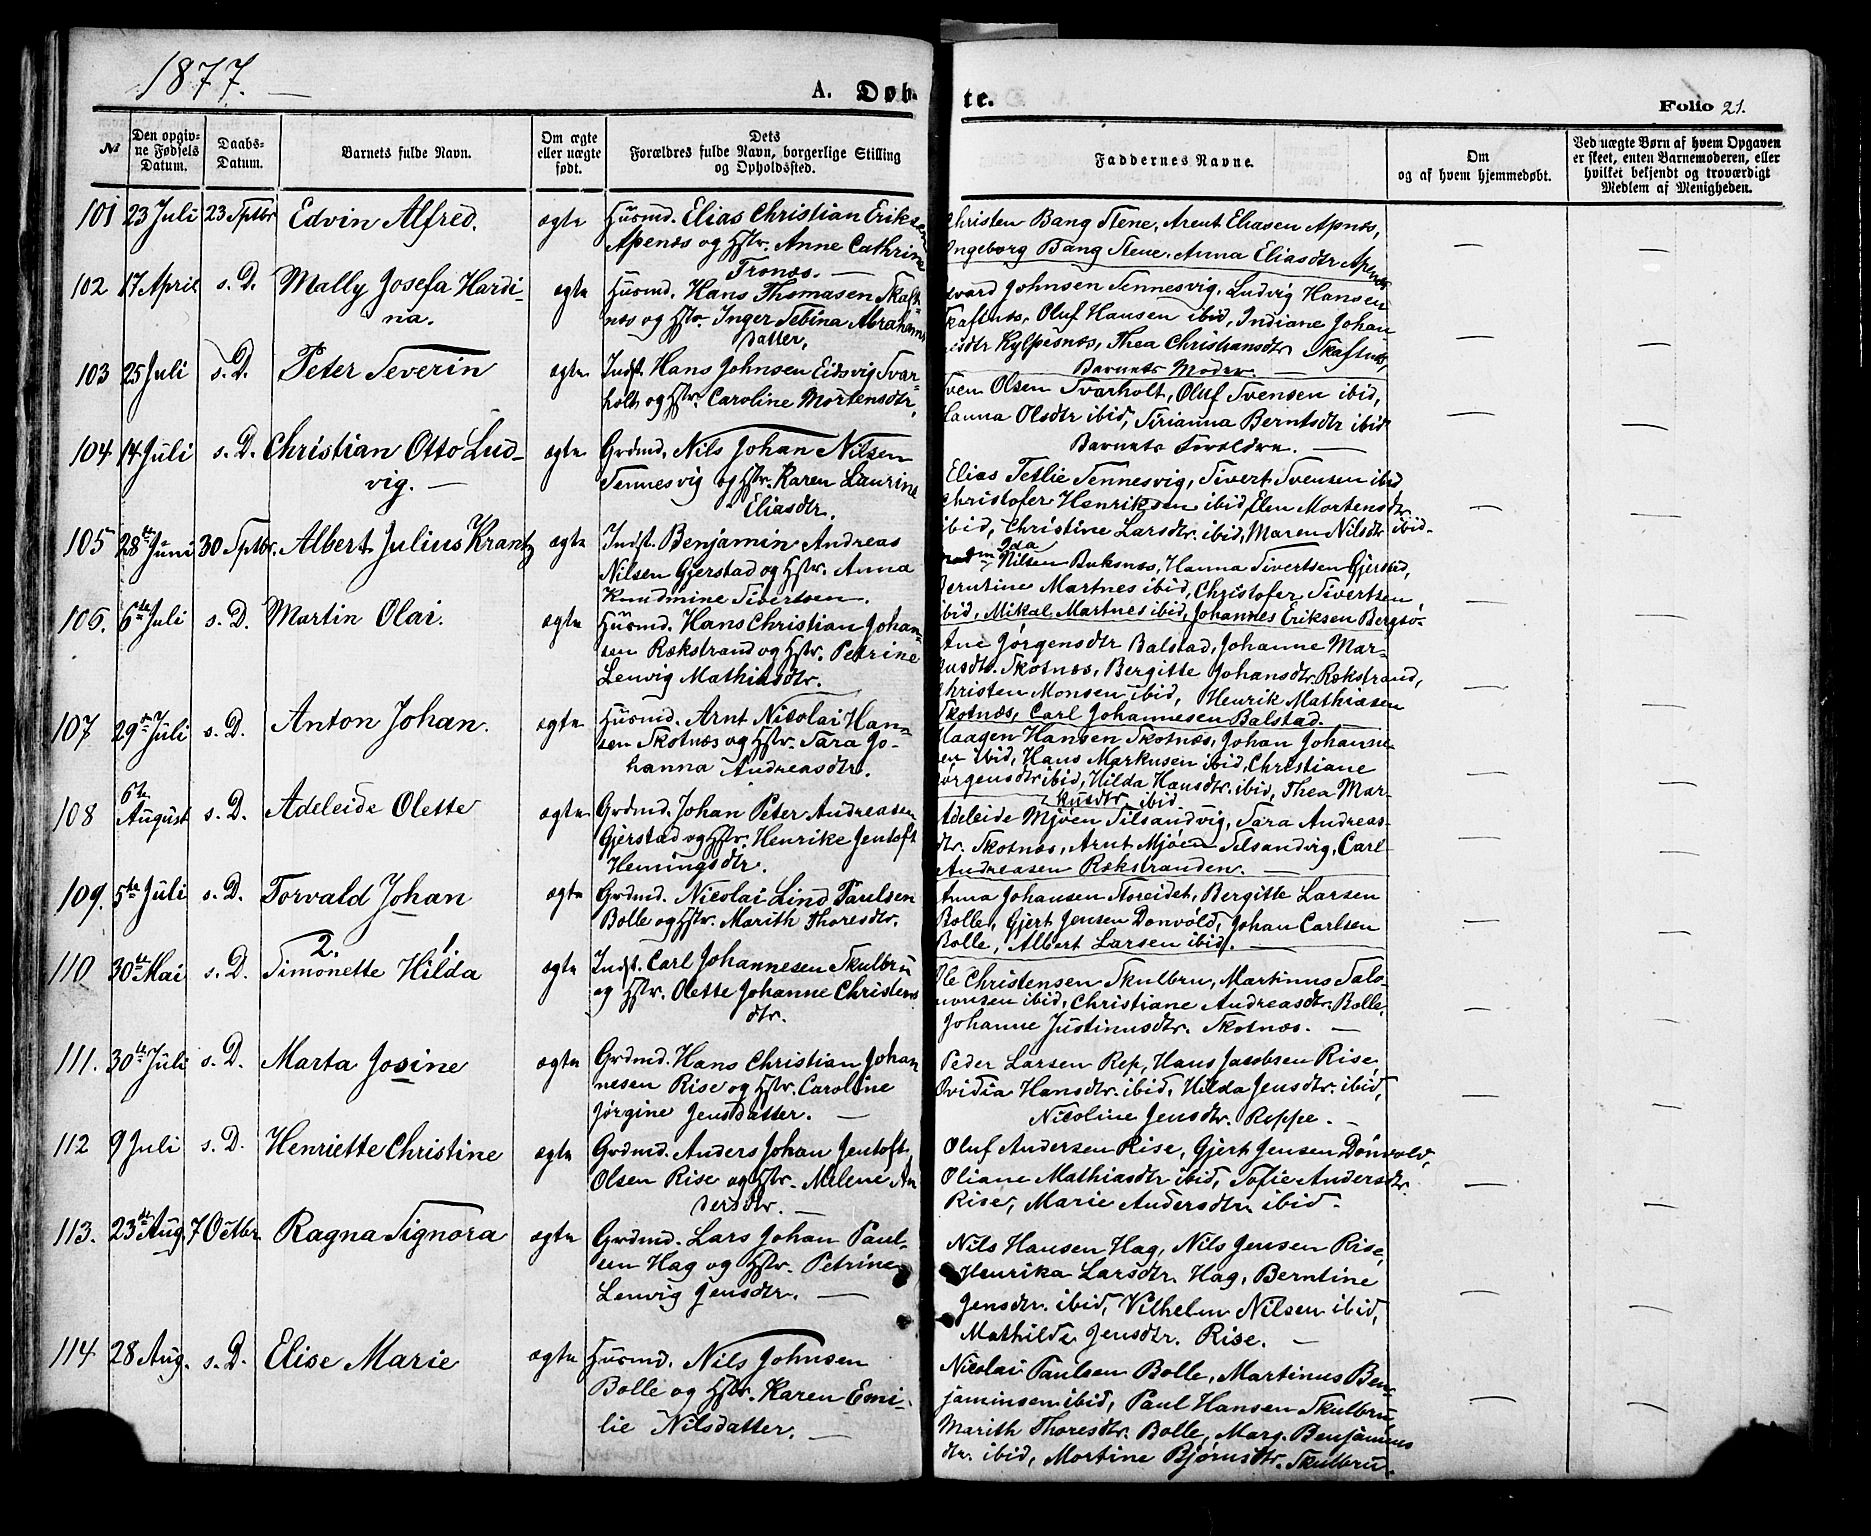 1877.
A. Døb-
te.
Folio 21.
№
Den opgiv-
ne Fødsels
Datum.
Daabs-
Datum.
Barnets fulde Navn.
Om ægte
eller uægte
født.
Dets
Forældres fulde Navn, borgerlige Stilling
og Opholdssted.
Faddernes Navne.
Om
og af hvem hjemmedøbt.
Ved uægte Børn af hvem Opgaven
er skeet, enten Barnemoderen, eller
hvilket bekjendt og troværdigt
Medlem af Menigheden.
101 23 Juli 23 Sptbr Edvin Alfred. ægte Husmd. Elias Christian Eriksen
Apenæs og Hstr. Anne Cathrine
Tronæs. —
Christen Bang Stene, Arent Eliasen Apnæs,
Ingeborg Bang Stene, Anna Eliasdtr Apenæs
102 17 April s. D. Mally Josefa Hardi-
na.
ægte Husmd. Hans Thomasen Skaft-
næs og Hstr. Inger Sebina Abrahams
datter,
Johnsen Sennesvig, Ludvig Hansen
Skaftnæs, Oluf Hansen ibid, Indiane Johan
Kylpesnæs, Thea Christiansdtr Skaftnæs,
Barnets Moder. —
103 25 Juli s. D. Peter Severin ægte Indst. Hans Johnsen Eidsvig Svar-
holt og Hstr. Caroline Mortensdtr,
Sven Olsen Svarholt, Oluf Svensen ibid,
Hanna Olsdtr ibid, Sirianna Berntsdtr ibid
Barnets Forældre. —
104 14 Juli s. D. Christian Otto Lud-
vig. —
ægte Grdmd. Nils Johan Nilsen
Sennesvig og Hstr. Karen Laurine
Eliasdtr.
Elias Tetlie Sennesvig, Sivert Svensen ibid
Christofer Henriksen ibid, Elen Mortensdtr
ibid, Christine Larsdtr. ibid, Maren Nilsdtr ibid-
105 28te Juni 30 Sptbr. Albert Julius Krantz ægte Indst. Benjamin Andreas
Nilsen Gjerstad og Hstr. Anna
Knudmine Sivertsen.
Ida
Nilsen Buksnæs, Hanna Sivertsen Gjerstad,
Berntine Martnes ibid, Christofer Sivertsen
ibid, Mikal Martnes ibid, Johannes Eriksen Bergsö-
106. 6te Juli s. D. Martin Olai. ægte Husmd. Hans Christian Johan-
sen Rækstrand og Hstr. Petrine
Lenvig Mathiasdtr.
Ane Jörgensdtr Balstad, Johanne Mar-
kusdtr. Skotnæs, Bergitte Johansdtr. Rækstrand,
Christen Monsen ibid, Henrik Mathiasen
Skotnæs, Carl Johannesen Balstad.
107 29de Juli s. D. Anton Johan. ægte Husmd. Arnt Nicolai Han-
sen Skotnæs og Hstr. Sara Jo-
hanna Andreasdtr.
Haagen Hansen Skotnæs, Johan Johanne-
sen ibid, Hans Markusen ibid, Christiane
Jörgensdtr ibid, Hilda Hansdtr. ibid, Thea Mar-
kusdtr. ibid
108 6te August s. D. Adeleide Olette ægte Grdmd. Johan Peter Andreasen
Gjerstad og Hstr. Henrike Jentoft
Hemingsdtr.
Adeleide Mjöen Silsandvig, Sara Andreas-
dtr. Skotnæs, Arnt Mjöen Silsandvig, Carl
Andreasen Rækstranden. —
109. 5te Juli s. D. Torvald Johan ægte Grdmd. Nicolai Lind Paulsen
Bolle og Hstr. Marith Thoresdtr.
Anna Johansen Storeidet, Bergitte Larsen
Bolle, Gjert Jensen Donvold, Johan Carlsen
Bolle, Albert Larsen ibid. —
110 30te Mai s. D. 2. 1.
Simonette Hilda ægte Indst. Carl Johannesen Skulbru
og Hstr. Olette Johanne Christens
dtr.
Ole Christensen Skulbru, Martinus Salo-
monsen ibid, Christiane Andreasdtr. Bolle,
Johanne Justinusdtr. Skotnæs. —
111. 30te Juli s. D. Marta Josine ægte Grdmd. Hans Christian Johan
nesen Rise og Hstr. Caroline
Jørgine Jensdatter. —
Peder Larsen Rep, Hans Jacobsen Rise,
Ovidia Hansdtr. ibid, Hilda Jensdtr. ibid,
Nicoline Jensdtr. Reppe. —
112 9 Juli s. D. Henriette Christine ægte Grdmd. Anders Johan Jentoft
Olsen Rise og Hstr. Milene An
dersdtr. —
Oluf Andersen Rise, Gjert Jensen Dönvold,
Oliane Mathiasdtr ibid, Sofie Andersdtr.
Rise, Marie Andersdtr. ibid.
113. 23de Aug. 7 Octbr. Ragna Signora ægte Grdmd. Lars Johan Paul-
sen Hag og Hstr. Petrine
Lenvig Jensdtr. —
Nils Hansen Hag, Nils Jensen Rise,
Henrika Larsdtr. Hag, Berntine
Jensdtr. ibid, Vilhelm Nilsen ibid,
Mathilde Jensdtr. Rise. —
114 28 Aug. s. D. Elise Marie ægte Husmd. Nils Johnsen
Bolle og Hstr. Karen Emi-
lie Nilsdatter. —
Nicolai Paulsen Bolle, Martinus Ben-
jaminsen ibid, Paul Hansen Skulbru,
Marith Thoresdtr. Bolle, Marg. Benjamins
dtr. ibid, Mortine Bjørnsdtr. Skulbru.